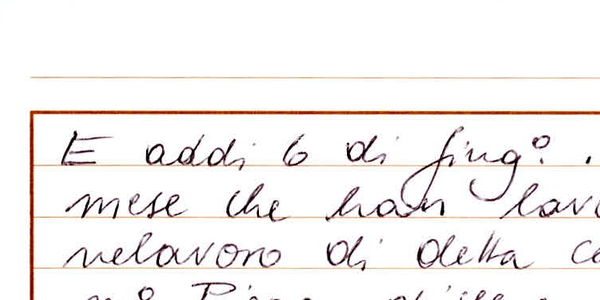 E addi 6 di giug°. .
mese che han lav
nelavoro di detta c